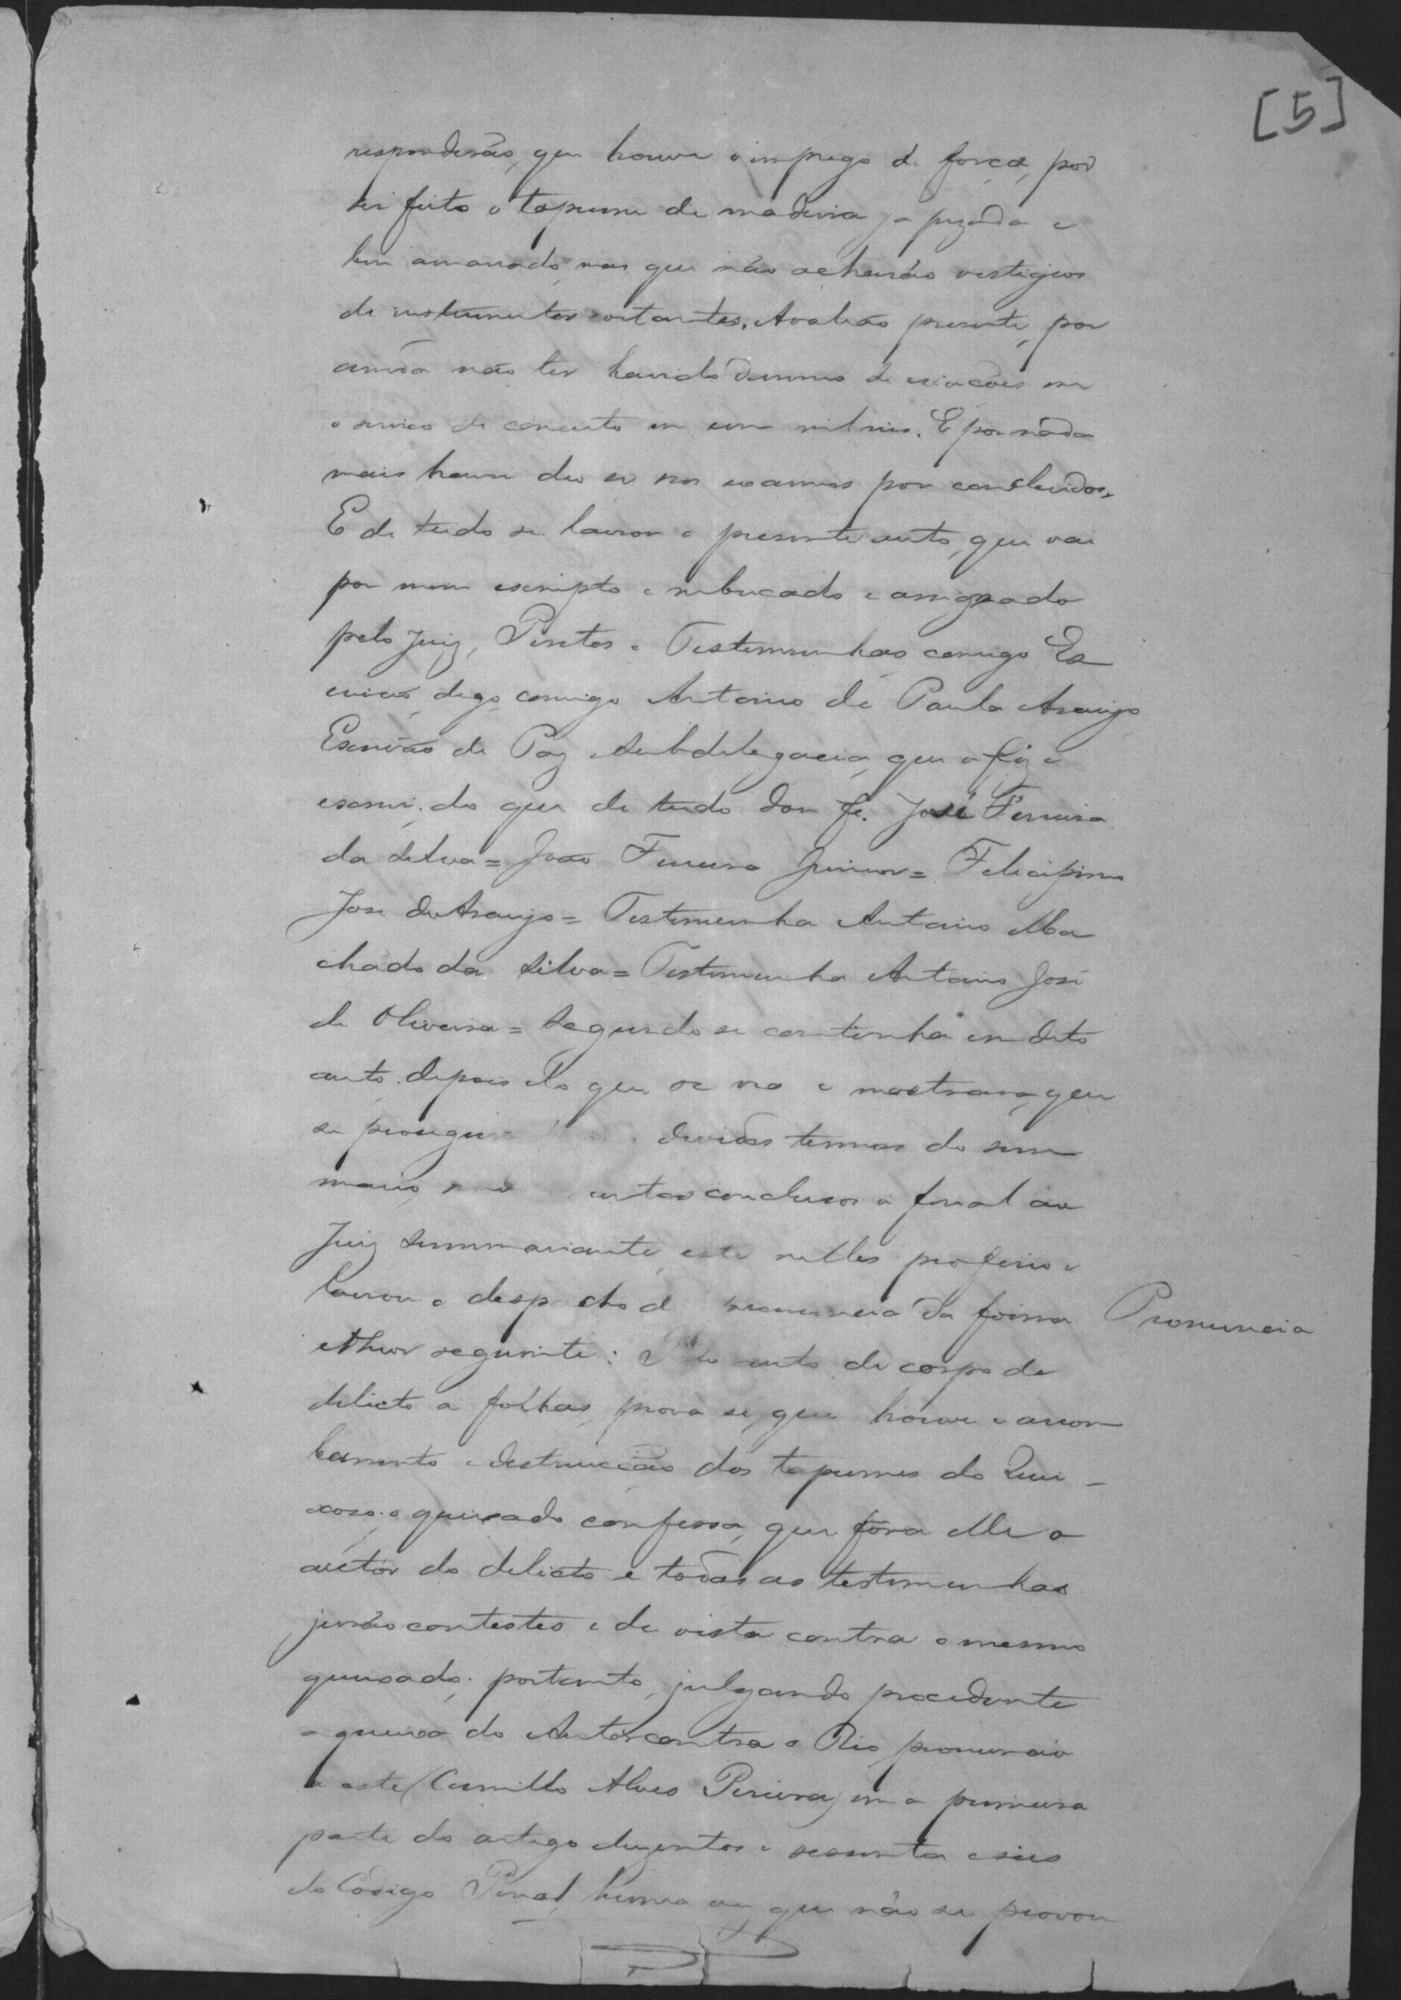 [5]
responderão, que houve o imprego de força, por
ser feito o tapume de madeira ja pizada e
bem amarrado, mas que não acharão vestigios
de instrumentos cortantes. Avalião presente, por
ainda não ter havido damnos de criações em
o serviço de concerto em um mil reis. E por nada
mais haver deu se nos exames por concluidos.
E de tudo se lavrou o presente auto, que vai
por mim escripto e rubricado e assignado
pelo Juiz, Peritos e Testemunhas comigo Es
crivão, digo, comigo Antonio de Paula Araujo
Escrivão de Paz Subdelegacia, que o fiz e
escrevi, do que de tudo dou fé. José Ferreira
da Silva = João Ferreira Junior = Felicissimo
José de Araujo = Testemunha Antonio Ma
chado da Silva = Testemunha Antonio José
de Oliveira = Segundo se continha em dito
auto. depois do que se via e mostrava, que
se prosegui devidos termos do sum
mario, autos conclusos a final ao
Juiz Summariante, este nelles proferio e
lavrou o despacho de pronuncia da forma
Pronuncia
e theor seguinte: Pelo auto de corpo de
delicto a folhas, prova se, que houve o arrom
bamento e destruicção dos tapumes do Quei-
xoso; o queixado confessa, que fora elle o
auctor do delicto e todas as testemunhas
jurão contestes e de vista contra o mesmo
queixado; portanto, julgando procedente
a queixa do Autor contra o Réo, pronuncio
a este (Camillo Alves Pereira) em a primeira
parte do artigo duzentos e sessenta e seis
do Codigo Penal, huma vez que não se provou